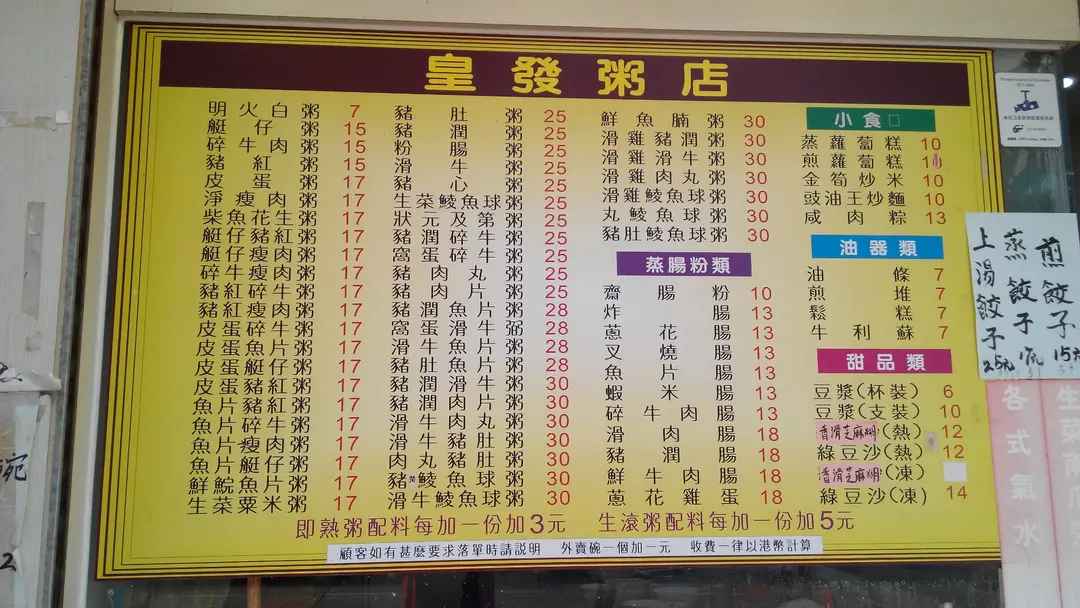 皇發粥店
明火白粥 7
艇仔粥 15
碎牛肉粥 15
豬紅粥 15
皮蛋粥 17
淨瘦肉粥 17
柴魚花生粥 17
艇仔豬紅粥 17
艇仔瘦肉粥 17
碎牛瘦肉粥 17
豬紅碎牛粥 17
豬紅瘦肉粥 17
皮蛋碎牛粥 17
皮蛋魚片粥 17
皮蛋艇仔粥 17
皮蛋豬紅粥 17
魚片豬紅粥 17
魚片碎牛粥 17
魚片瘦肉粥 17
魚片艇仔粥 17
鮮鯇魚片粥 17
生菜粟米粥 17
豬肚粥 25
豬潤粥 25
粉腸粥 25
滑牛粥 25
豬心粥 25
生菜鯪魚球粥 25
狀元及第粥 25
豬潤碎牛粥 25
窩蛋碎牛粥 25
豬肉丸粥 25
豬肉片粥 25
豬潤魚片粥 28
窩蛋滑牛粥 28
滑牛魚片粥 28
豬肚魚片粥 28
豬潤滑牛粥 30
豬潤肉片粥 30
滑牛肉丸粥 30
滑牛豬肚粥 30
肉丸豬肚粥 30
豬潤鯪魚球粥 30
滑牛鯪魚球粥 30
鮮魚腩粥 30
滑雞豬潤粥 30
滑雞滑牛粥 30
滑雞肉丸粥 30
滑雞鯪魚球粥 30
丸鯪魚球粥 30
豬肚鯪魚球粥 30
蒸腸粉類
齋腸粉 10
炸腸 13
蔥花腸 13
叉燒腸 13
魚片腸 13
蝦米腸 13
碎牛肉腸 13
滑肉腸 18
豬潤腸 18
鮮牛肉腸 18
蔥花雞蛋 18
小食□
蒸蘿蔔糕 10
煎蘿蔔糕
金筍炒米 10
豉油王炒麵 10
咸肉粽 13
油器類
油條 7
煎堆 7
鬆糕 7
牛利酥 7
甜品類
豆漿(杯裝) 6
豆漿(支裝) 10
香滑芝麻糊(熱) 12
綠豆沙(熱) 12
香滑芝麻糊(凍)
綠豆沙(凍) 14
即熟粥配料每加一份加3元 生滾粥配料每加一份加5元
顧客如有甚麼要求落單時請説明 外賣碗一個加一元 收費一律以港幣計算
煎餃子 15元
蒸餃子
上湯餃子 25元
各式氣水
生菜